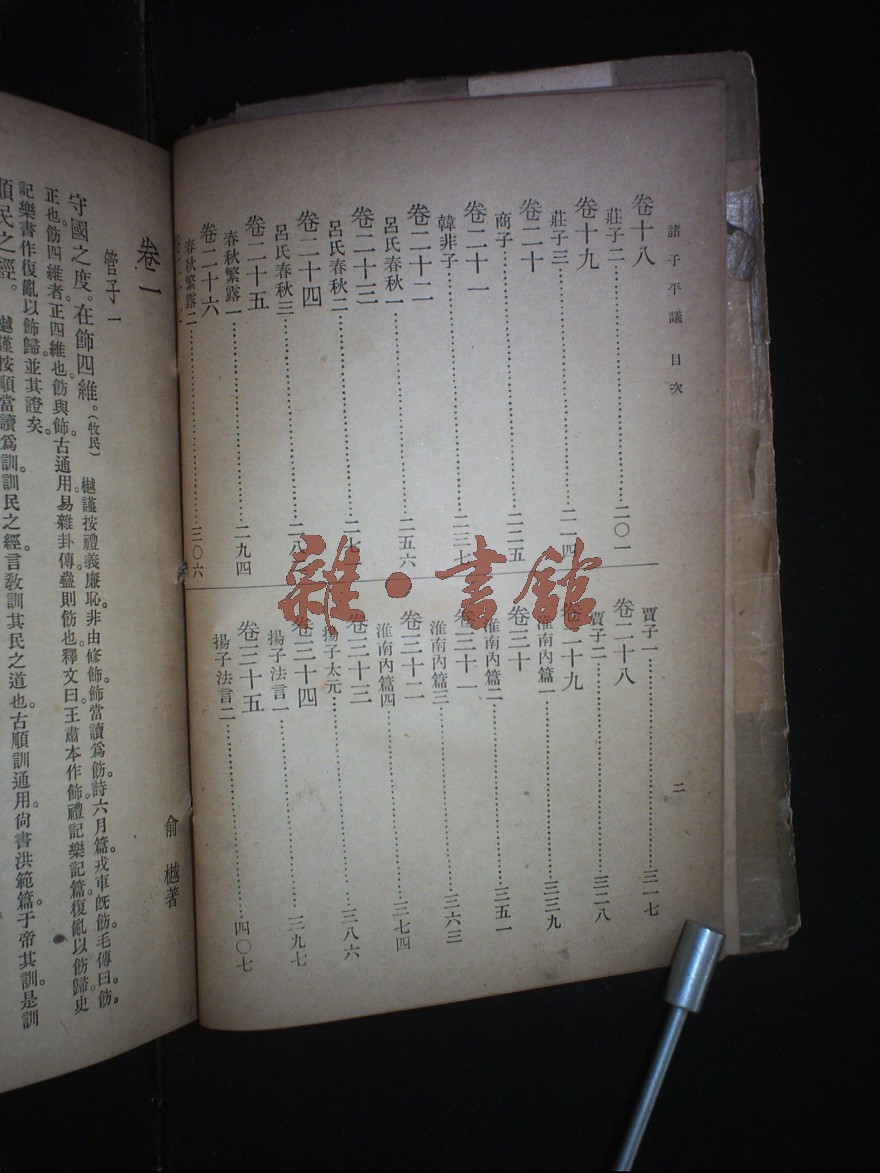 諸子平議 目次
二
卷十八
莊子二……二〇一
卷十九
莊子三……二一四
卷二十
商子……二二五
卷二十一
韓非子……二三七
卷二十二
呂氏春秋一……二五六
卷二十三
呂氏春秋二……二七
卷二十四
呂氏春秋三……二八
卷二十五
春秋繁露一……二九四
卷二十六
春秋繁露二……三〇六
賈子一……三一七
卷二十八
賈子二……三二八
卷二十九
淮南內篇一……三三九
卷三十
淮南內篇二……三五一
卷三十一
淮南內篇三……三六三
卷三十二
淮南內篇四……三七四
卷三十三
揚子太元……三八六
卷三十四
揚子法言一……三九七
卷三十五
揚子法言二……四〇七
雜·書館
俞樾著
卷一
管子一
守國之度。在飾四維。(牧民) 樾謹按禮義廉恥。非由修飾。飾當讀爲飭。詩六月篇。戎車既飭。毛傳曰。飭。
正也。飭四維者。正四維也。飭與飾古通用。易雜卦傳。蠱則飭也。釋文曰。王肅本作飾。禮記樂記篇。復亂以飭歸。史
記樂書作復亂以飾歸。並其證矣。
順民之經。 樾謹按順當讀爲訓。訓民之經。言教訓其民之道也。古順訓通用。尙書洪範篇。于帝其訓。是訓